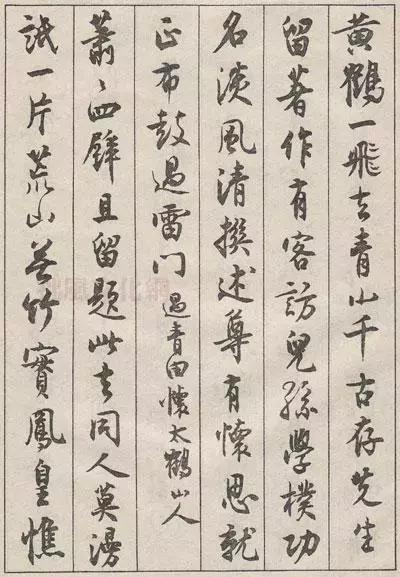 黄鶴一飛去青山千古存先生
留著作有客訪兒孫學樸功
名淡風清撰述尊有懷思就
正布鼓過雷門 過青田懷太鶴山人
蕭〻四壁且留題此去同人莫漫
詆一片荒山無竹實鳳皇憔